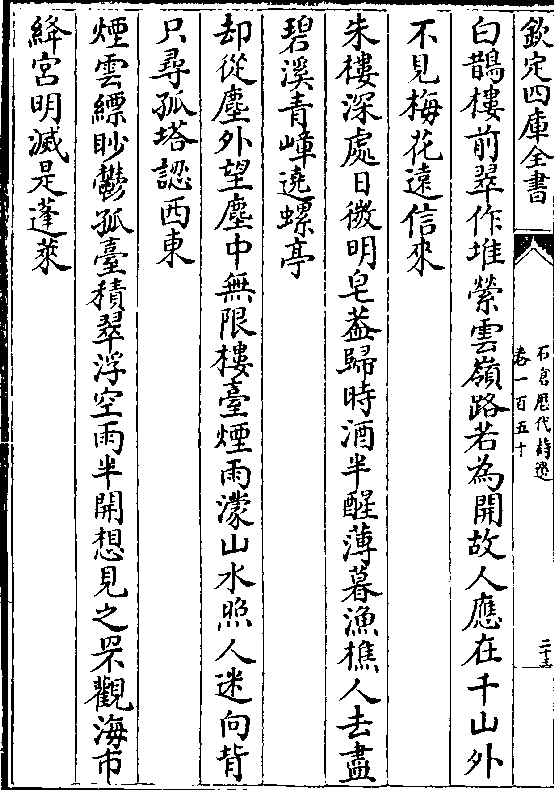 欽定四庫全書
石倉歷代詩選
卷一百五十
二十三
白鵲樓前翠作堆縈雲嶺路若為開故人應在千山外
不見梅花遠信來
朱樓深處日微明皂蓋歸時酒半醒薄暮漁樵人去盡
碧溪青嶂遶螺亭
却從塵外望塵中無限樓臺煙雨濛山水照人迷向背
只尋孤塔認西東
煙雲縹眇鬱孤臺積翠浮空雨半開想見之罘觀海市
絳宮明滅是蓬萊